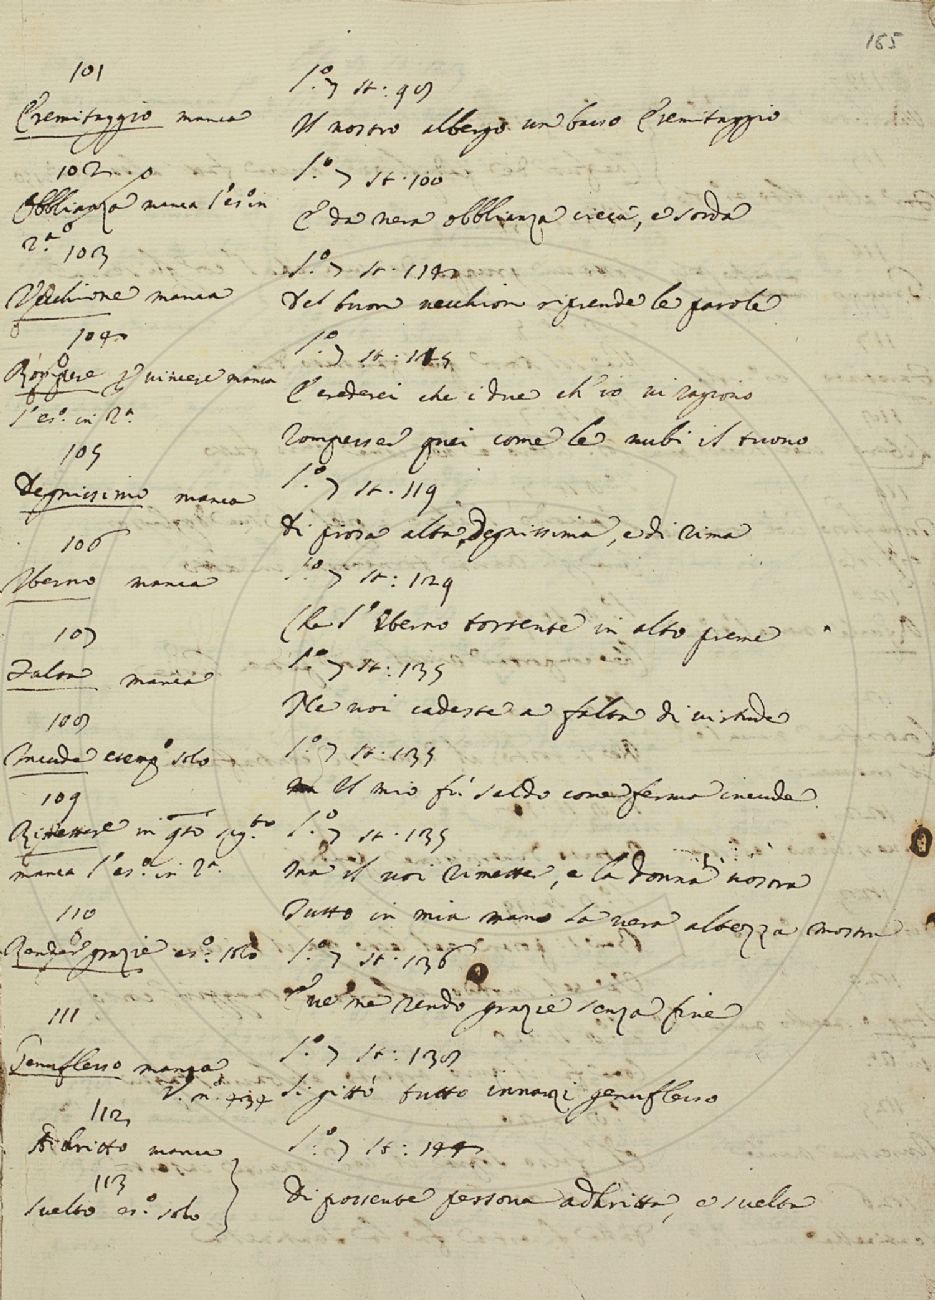 165
101
l.o 7 st. 98
Eremitaggio manca
Il nostro albergo un basso Eremitaggio
102
l.o 7 st. 100
Obblianza manca l'es.o in
2.a
E da nera obblianza cieca, e sorda
103
l.o 7 st. 114
Vecchione manca
Del buon vecchion riprende le parole
104
l.o 7 st. 115
Rompere p vincere manca
l'es.o in 2.a
Crederei che i due ch'io vi ragiono
Romperser quei come le nubi il tuono
105
l.o 7 st. 119
Degnissimo manca
Di prosa alta, degnissima, e di rima
106
l.o 7 st: 129
Iberno manca
Che l'Iberno torrente in alto preme
107
l.o 7 st. 135
Falta manca
Ne voi cadeste a falta di virtude
108
l.o 7 st. 135
Incude esemp.o solo
Il mio fu saldo come ferma incude
109
l.o 7 st. 135
Rimettere in qto sig.to
manca l'es.o in 2.a
Ma il voi rimetter, e la donna vostra
Tutto in mia mano la vera altezza mostra
110
l.o 7 st: 136
Render grazie es.o solo
Che ve ne rendo grazie senza fine
111
l.o 7 st: 138
Genuflesso manca
V. n.o 434
Si gittò tutto innanzi genuflesso
112
l.o 7 st: 144
Adritto manca
113
svelto es.o solo
Di possente persona adhritta, e svelta